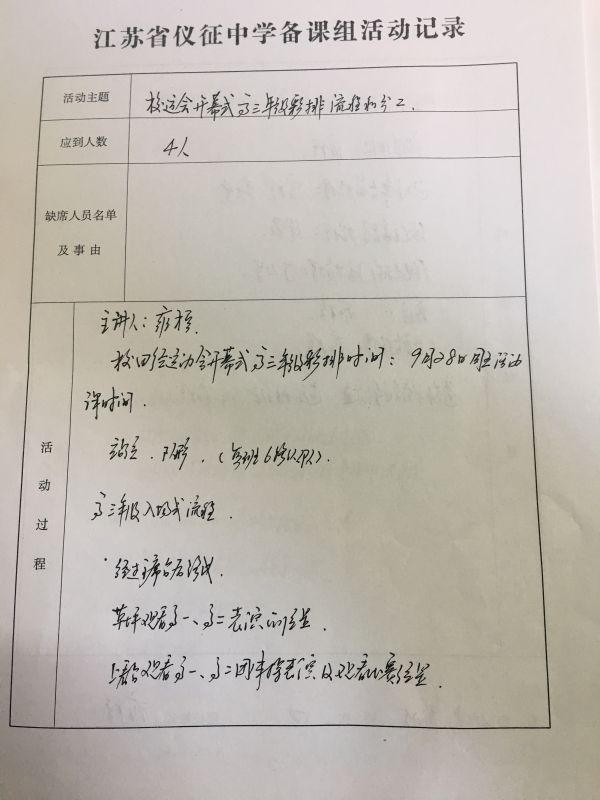 江苏省仪征中学备课组活动记录
活动主题 校运会开幕式高三年级彩排流程和分工.
应到人数 4人
缺席人员名单
及事由
活动过程
主讲人：
校田径运动会开幕式高三年级彩排时间：9月28日周五活动
课时间.
站位、队形.（每班6路纵队）.
高三年级入场式流程.
经过主席台后
草坪观看高一、高二表演的位置.
上看台观看高一、高二团体操表演及观看比赛位置.